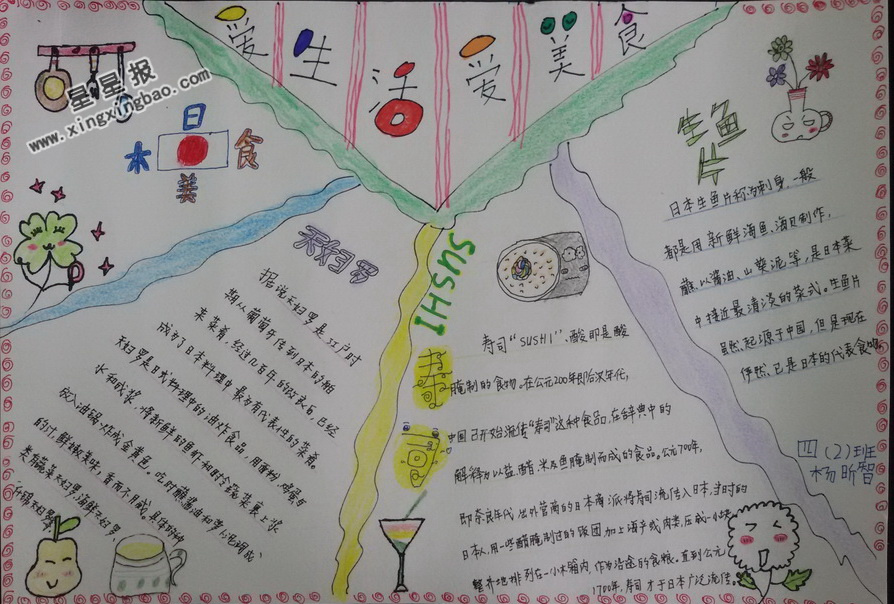 爱生活爱美食
星星报
www.xingxingbao.com
日
本
美
食
天妇罗
据说天妇罗是江户时
期从葡萄牙传到日本的舶
来菜肴，经过几百年的改良，已经
成为了日本料理中最为有代表性的菜肴。
天妇罗是日式料理中的油炸食品，用面粉、鸡蛋与
水和成浆，将新鲜的鱼虾和时令蔬菜裹上浆
放入油锅炸成金黄色，吃时蘸酱油和萝卜泥调成
的汁，鲜嫩美味，香而不腻。具体的种
类有蔬菜天妇罗、海鲜天妇罗、
SUSHI
寿司
寿司“SUSHI”，酸即是酸
腌制的食物。在公元200年即后汉年代，
中国已开始流传“寿司”这种食品，在辞典中的
解释为以盐、醋、米及鱼腌制而成的食品。公元700年，
即奈良年代，出外营商的日本商派将寿司流传入日本，当时的
日本人，用一些醋腌制过的饭团，加上海产或肉类，压成一小块，
整齐地排列在一小木箱内，作为沿途的食粮，直到公元
1700年，寿司才于日本广泛流传。
生鱼
片
日本生鱼片称为刺身，一般
都是用新鲜海鱼、海贝制作，
蘸以酱油、山葵泥等，是日本菜
中接近最清淡的菜式。生鱼片
虽然起源于中国，但是现在
俨然已是日本的代表食物
四（2）班
杨昕智